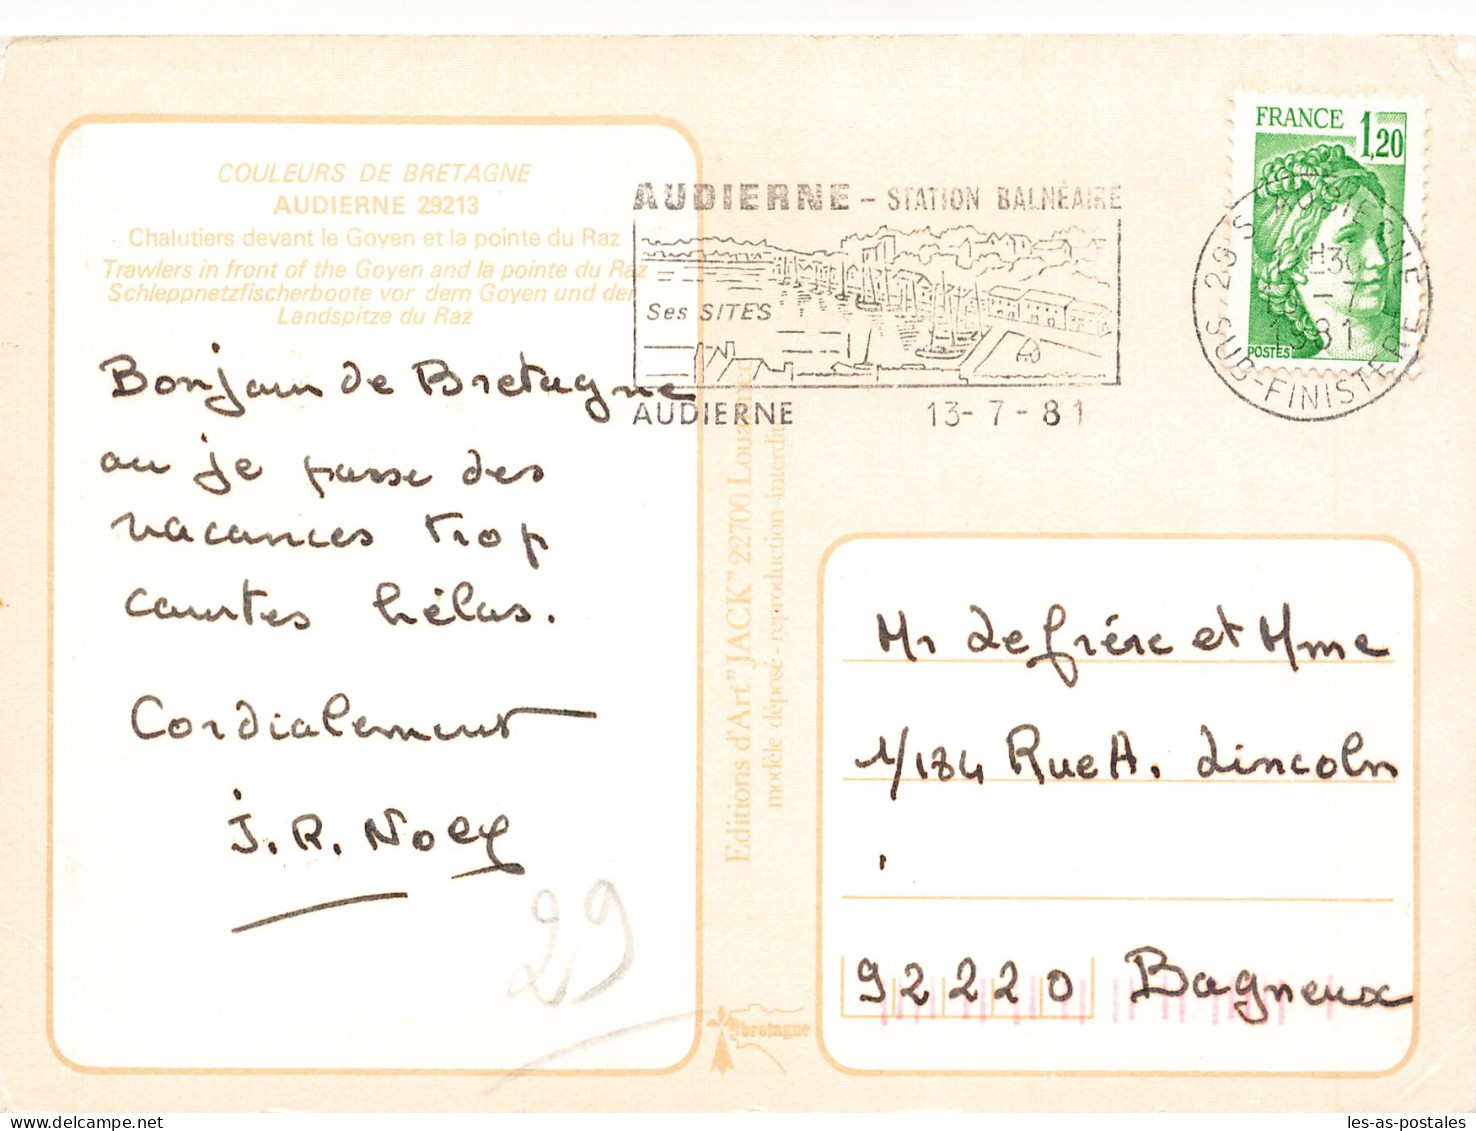 COULEURS DE BRETAGNE
AUDIERNE 29213
Chalutiers devant le Goyen et la pointe du Raz
Trawlers in front of the Goyen and la pointe du Raz
Schleppnetzfischerboote vor dem Goyen und der
Landspitze du Raz
Bonjour de Bretagne
ou je passe des
vacances trop
courtes hélas.
Cordialement
J. R. Noey
29
Editions d'Art "JACK" 22700 Louannec
modèle déposé - reproduction interdite
bretagne
AUDIERNE - STATION BALNÉAIRE
Ses SITES
AUDIERNE 13-7-81
FRANCE 1,20
POSTES
29 S AUDIERNE
H30
-7
1981
SUD-FINISTERE
Mr Lefrére et Mme
1/184 Rue A. Lincoln
92220 Bagneux
les-as-postales